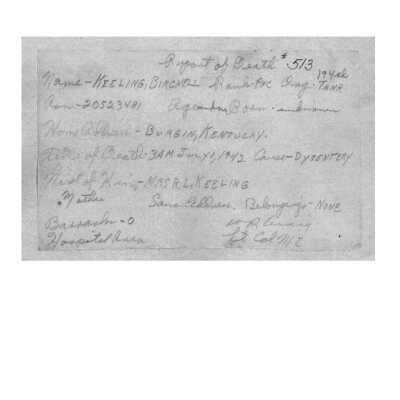 Report of Death #513
Name - KEELING, BIRCHELL Rank - Pvc Org. 194th TANK
A.s.n - 20523481 Age and Born - unknown
Home Address - BURGIN, KENTUCKY.
Date of Death - 3AM July 1, 1942 Cause - DYSENTERY
Next of Kin - MRS R.L. KEELING
Mother Same Address. Belongings - NONE
Barracks - O
Hospital Area Lt Col M C